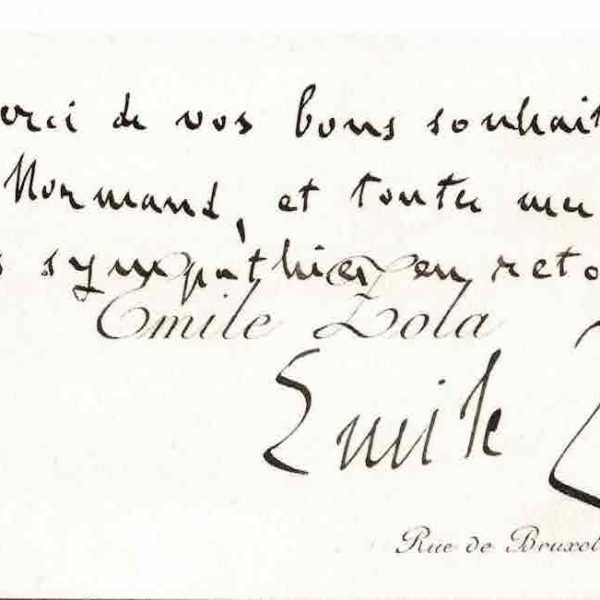 erci de vos bons souhait
Normand, et toutes mes
s sympathies en reto
Emile Zola
Emile Z
Rue de Bruxel